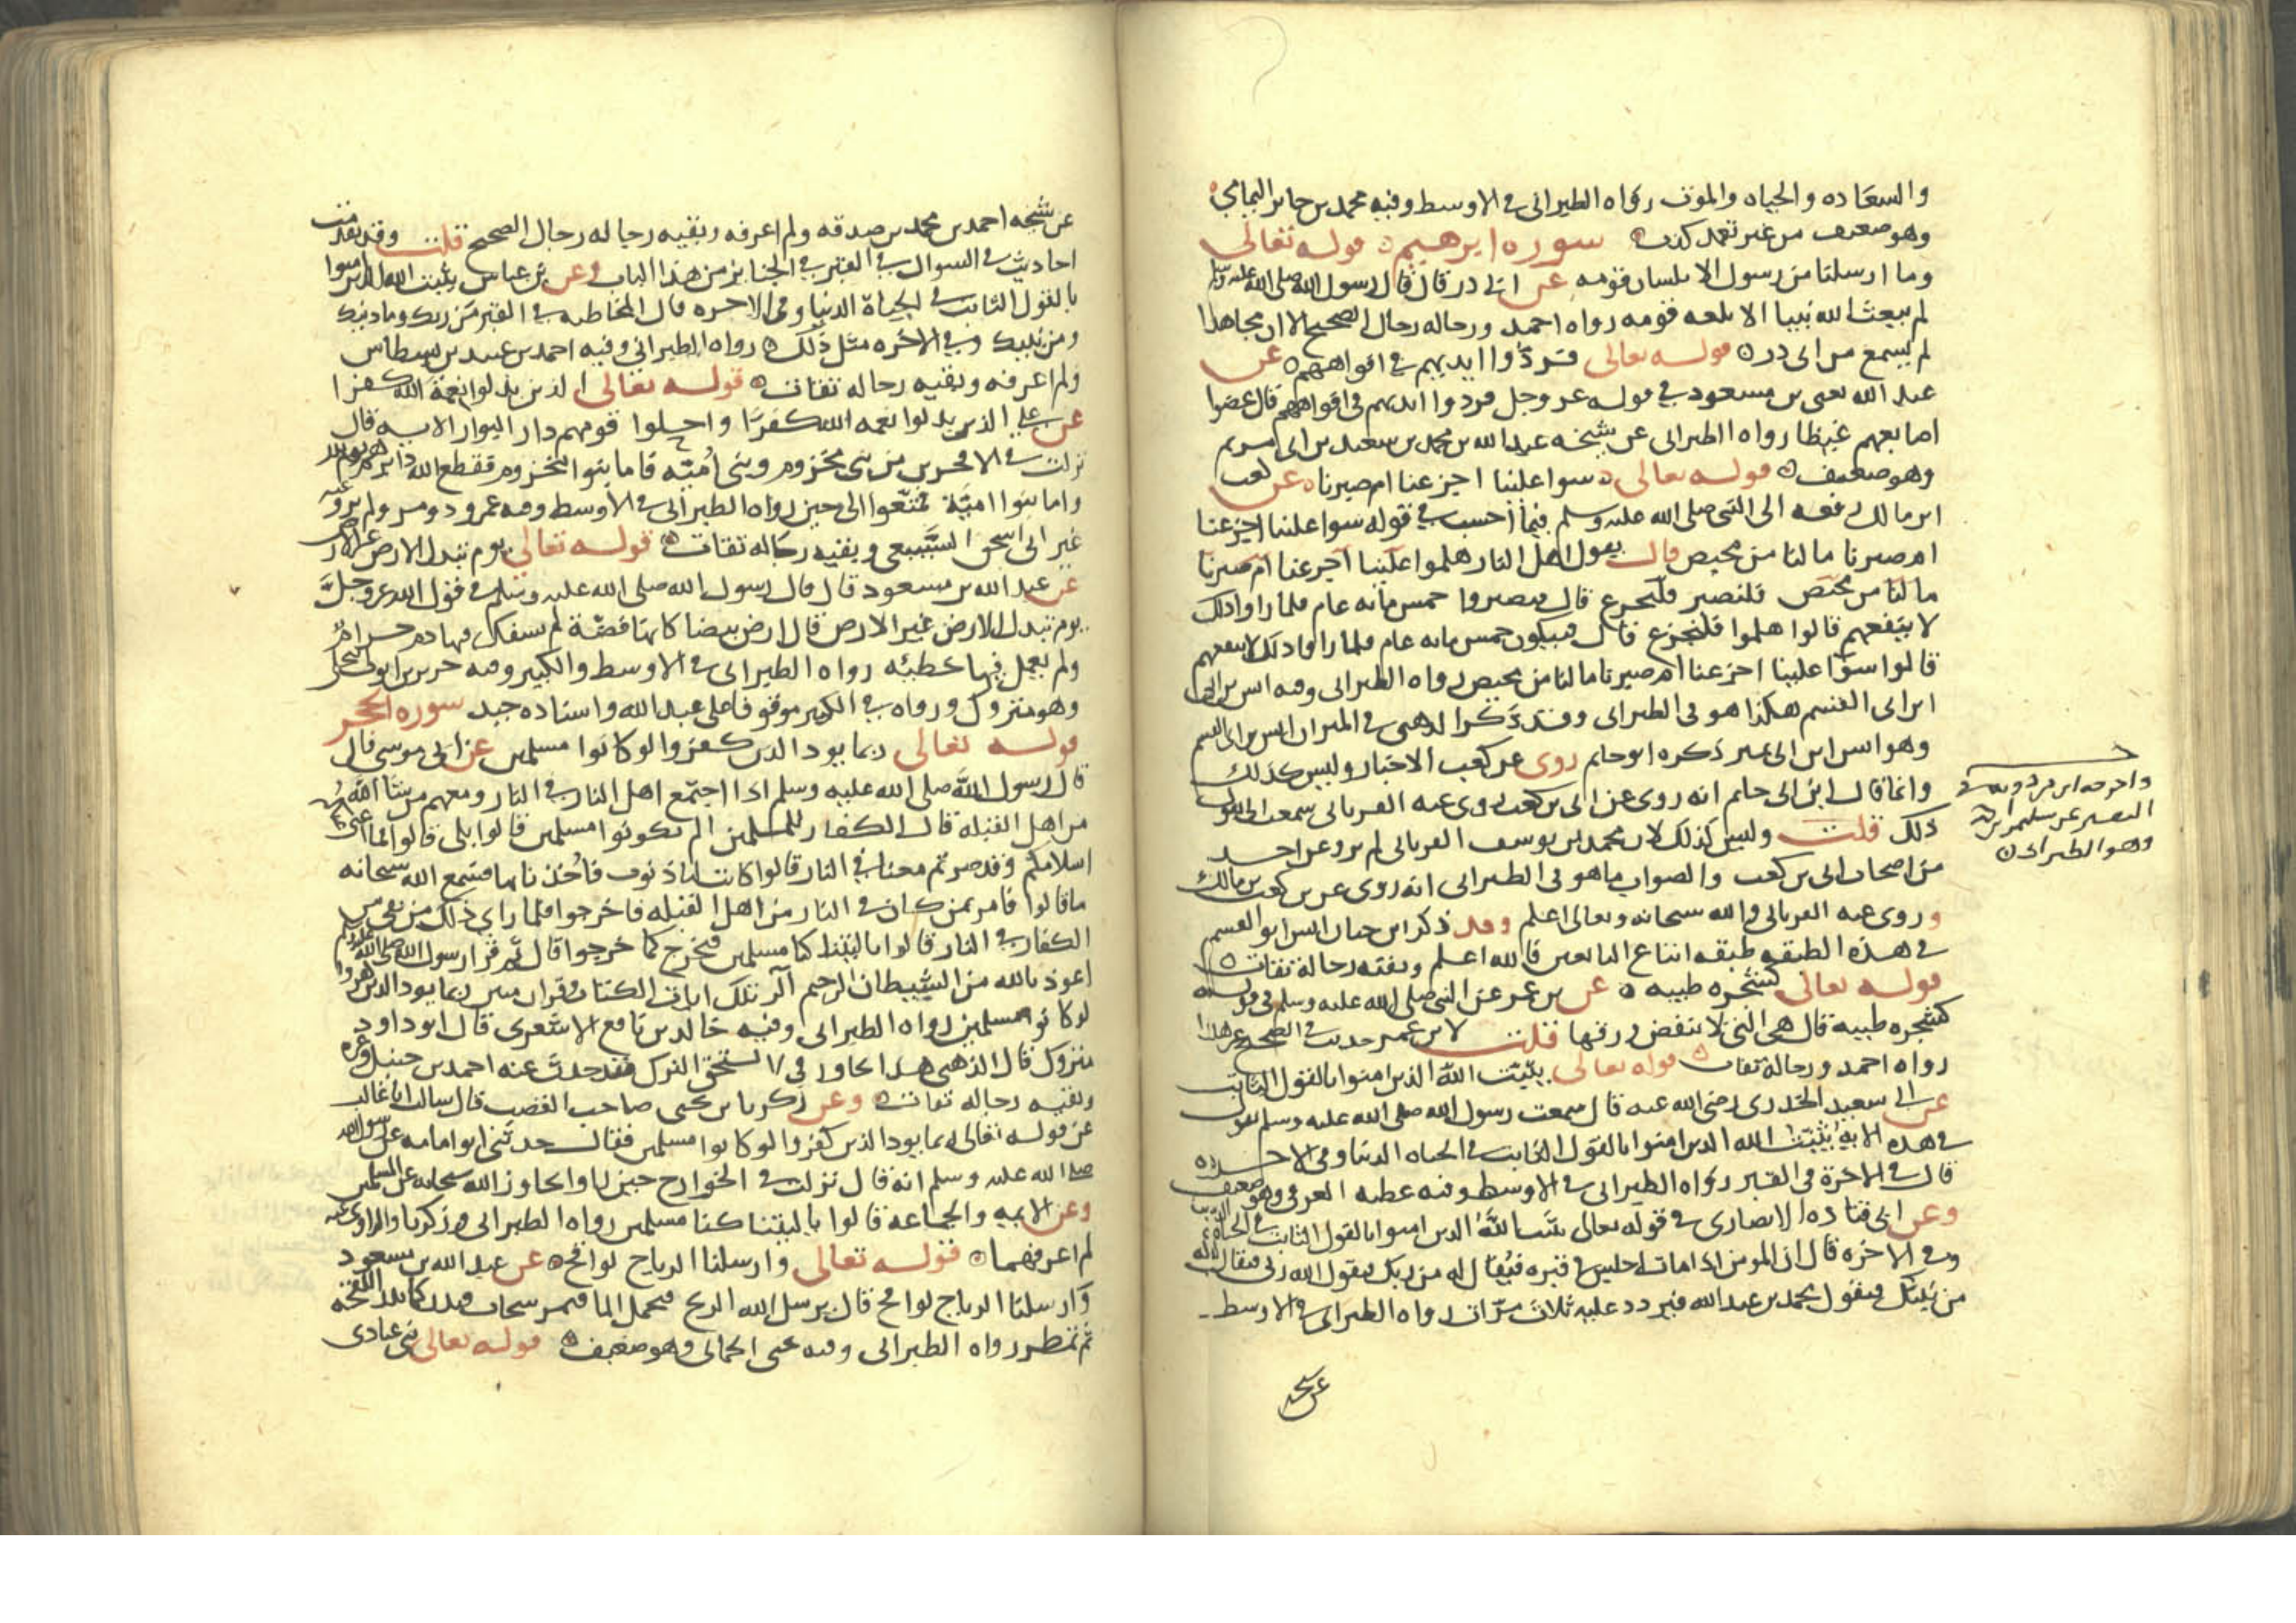 والسعاده والحياه والموت رواه الطبراني في الاوسط وفيه محمد بن جابر اليمامي
وهو ضعيف من غير تعمد كذب سورة ابرهيم قوله تعالى
وما ارسلنا من رسول الا بلسان قومه عن ابي ذر قال قال رسول الله صلى الله عليه وسلم
لم يبعث الله نبيا الا بلغه قومه رواه احمد ورجاله رجال الصحيح الا ان مجاهدا
لم يسمع من ابي ذر قوله تعالى فردوا ايديهم في افواههم عن
عبد الله يعني بن مسعود في قوله عز وجل فردوا ايديهم في افواههم قال عضوا
اصابعهم غيظا رواه الطبراني عن شيخه عبد الله بن محمد بن سعيد بن ابي مريم
وهو ضعيف قوله تعالى سوا علينا اجزعنا ام صبرنا عن كعب
ابن مالك رفعه الى النبي صلى الله عليه وسلم فيما احسب في قوله سوا علينا اجزعنا
ام صبرنا ما لنا من محيص قال يقول اهل النار هلموا فلنصبر
ما لنا من محيص فلنصبر فلنجزع قال فيصبروا خمس مايه عام فلما راوا ذلك
لا ينفعهم قالوا هلموا فلنجزع قال فيبكون خمس مايه عام فلما راوا ذلك لا ينفعهم
قالوا سوا علينا اجزعنا ام صبرنا ما لنا من محيص رواه الطبراني وفيه انس بن
ابن ابي القسم هكذا هو في الطبراني وقد ذكر الذهبي في الميزان انس بن ابي القسم
وهو انس ابن ابي نمير ذكره ابو حاتم روى عن كعب الاحبار وليس كذلك
وانما قال ابن ابي حاتم انه روى عن ابي بن كعب روى عنه الفريابي سمعت ابي يقول
ذلك قلت وليس كذلك لان محمد بن يوسف الفريابي لم يرو عن احد
من اصحاب ابي بن كعب والصواب ما هو في الطبراني انه روى عن بن كعب بن مالك
وروى عنه الفريابي والله سبحانه وتعالى اعلم وقد ذكر ابن حبان انس ابو القسم
في هذه الطبقه طبقه اتباع التابعين فالله اعلم وبقيه رجاله ثقات
قوله تعالى كشجره طيبه عن بن عمر عن النبي صلى الله عليه وسلم في قوله
كشجره طيبه قال هي التي لا ينفض ورقها قلت لابن عمر حديث في الصحيح غير هذا
رواه احمد ورجاله ثقات قوله تعالى يثبت الله الذين امنوا بالقول الثابت
عن ابي سعيد الخدري رضي الله عنه قال سمعت رسول الله صلى الله عليه وسلم يقول
في هذه الايه يثبت الله الذين امنوا بالقول الثابت في الحياه الدنيا وفي الاخره
قال في الاخرة في القبر رواه الطبراني في الاوسط وفيه عطيه العوفي وهو ضعيف
وعن ابي قتاده الانصاري في قوله تعالى يثبت الله الذين امنوا بالقول الثابت في الحياة الدنيا
وفي الاخره قال ان المومن اذا مات اجلس في قبره فيقال له من ربك فيقول الله ربي فيقال له
من نبيك فيقول محمد بن عبد الله فيردد عليه ثلاث مرات رواه الطبراني في الاوسط
عن شيخه
واخرجه ابن مردويه في
التفسير عن سليمان بن
وهو الطبراني
عن شيخه احمد بن محمد بن صدقه ولم اعرفه وبقيه رجاله رجال الصحيح قلت وقد تقدمت
احاديث في السوال في القبر في الجنايز من هذا الباب وعن بن عباس يثبت الله الذين امنوا
بالقول الثابت في الحياة الدنيا وفي الاخره قال المخاطبه في القبر من ربك وما دينك
ومن نبيك وفي الاخره مثل ذلك رواه الطبراني وفيه احمد بن عبيد بن بسطاس
ولم اعرفه وبقيه رجاله ثقات قوله تعالى الذين بدلوا نعمة الله كفرا
عن علي الذين بدلوا نعمه الله كفرا واحلوا قومهم دار البوار الايه قال
نزلت في الافجرين من بني مخزوم وبني اميه فاما بنوا مخزوم فقطع الله دابرهم يوم بدر
واما بنوا اميه فمتعوا الى حين رواه الطبراني في الاوسط وفيه عمرو ذو مر ولم يرو عنه
غير ابي اسحق السبيعي وبقيه رجاله ثقات قوله تعالى يوم تبدل الارض غير الارض
عن عبد الله بن مسعود قال قال رسول الله صلى الله عليه وسلم في قول الله عز وجل
يوم تبدل الارض غير الارض قال ارض بيضا كانها فضة لم يسفك فيها دم حرام
ولم يعمل فيها خطيئه رواه الطبراني في الاوسط والكبير وفيه جرير بن ايوب البجلي
وهو متروك ورواه في الكبير موقوفا على عبد الله واسناده جيد سوره الحجر
قوله تعالى ربما يود الذين كفروا لو كانوا مسلمين عن ابي موسى قال
قال رسول الله صلى الله عليه وسلم اذا اجتمع اهل النار في النار ومعهم من شا الله
من اهل القبله قال الكفار للمسلمين الم تكونوا مسلمين قالوا بلى قالوا فما اغنى عنكم
اسلامكم وقد صرتم معنا في النار قالوا كانت لنا ذنوب فاخذنا بها فسمع الله سبحانه
ما قالوا فامر بمن كان في النار من اهل القبله فاخرجوا فلما راى ذلك من بقي من
الكفار في النار قالوا يا ليتنا كنا مسلمين فنخرج كما خرجوا قال ثم قرا رسول الله صلى الله عليه وسلم
اعوذ بالله من الشيطان الرجيم الر تلك ايات الكتاب وقران مبين ربما يود الذين كفروا
لو كانوا مسلمين رواه الطبراني وفيه خالد بن نافع الاشعري قال ابو داود
متروك قال الذهبي هذا تجاوز في لا يستحق الترك فقد حدث عنه احمد بن حنبل وغيره
وبقيه رجاله ثقات وعن زكريا بن يحيى صاحب القضب قال سالت ابا غالب
عن قوله تعالى ربما يود الذين كفروا لو كانوا مسلمين فقال حدثني ابو امامه عن رسول الله
صلى الله عليه وسلم انه قال نزلت في الخوارج حين راوا تجاوز الله سبحانه عن المسلمين
وعن الايمه والجماعه قالوا يا ليتنا كنا مسلمين رواه الطبراني وزكريا والراوي عنه
لم اعرفهما قوله تعالى وارسلنا الرياح لواقح عن عبد الله بن مسعود
وارسلنا الرياح لواقح قال يرسل الله الريح فتحمل الما فتمر سحاب فتدر كما تدر اللقحة
ثم تمطر رواه الطبراني وفيه يحيى الحماني وهو ضعيف قوله تعالى نبي عبادي